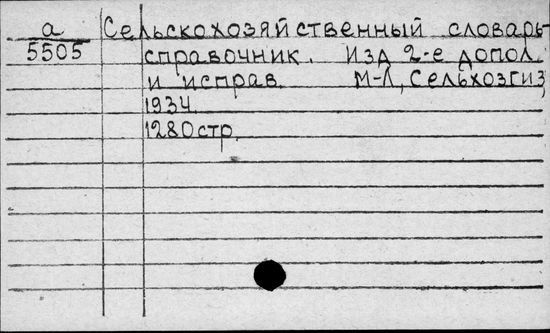 а Сельскохозяйственный словарь-
5505 справочник. Изд 2-е допол.
и исправ. М-Л, Сельхозгиз,
1934
1280стр.